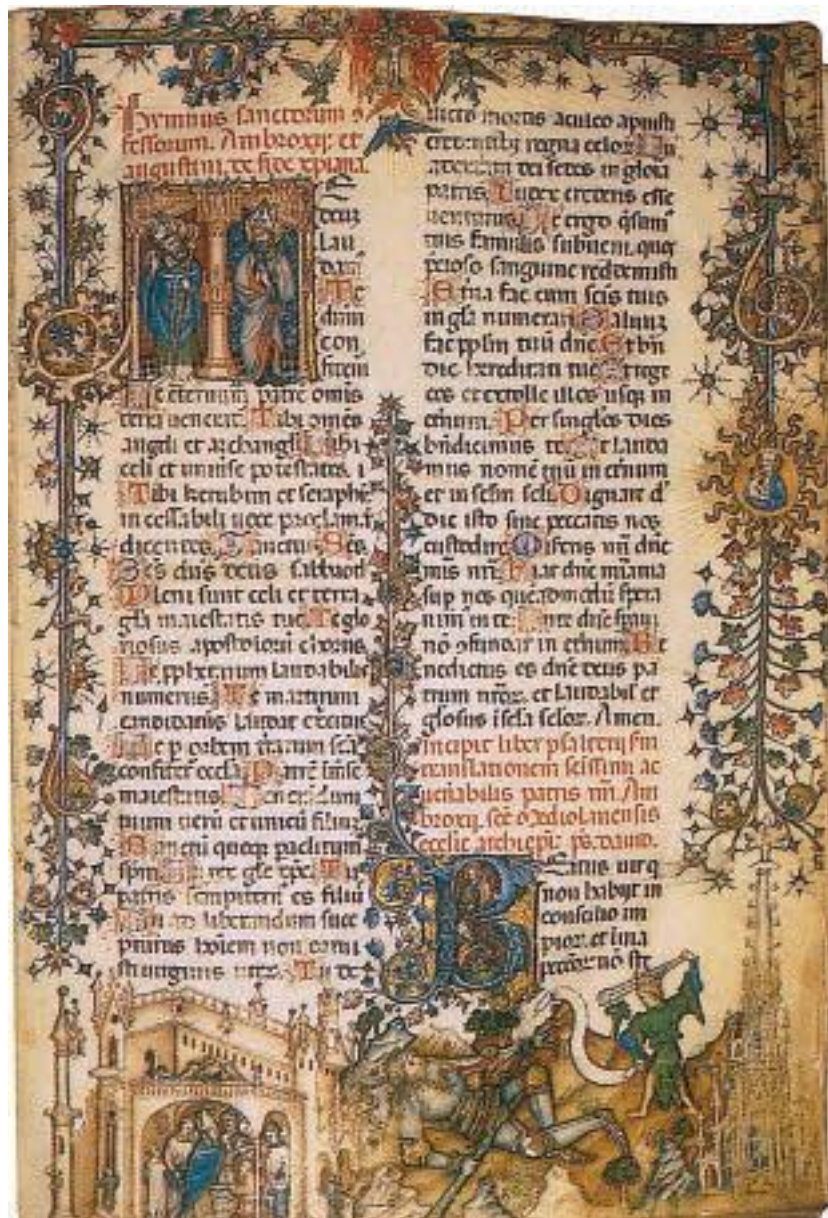 Hymnus sanctorum
fessorum. Ambroxij et
augustini, de fide xpiana.
Te
deuz
lau
dam
Te
dnm
con
fitem
Te eternum patre omis
terra venerat. Tibi omes
angeli et archangeli Tibi
celi et universe potestates.
Tibi kerubim et seraphi
incessabili voce proclamat
dicentes, Sanctus Scs
Scs dns deus sabbaot
Pleni sunt celi et terra
gle maiestatis tue Te glo
riosus apostolorum chorus
Te pphetarum laudabilis
numerus. Te martirum
candidatus laudat exercitus
Te p orbem terrarum sca
confitet ecclia Patre imense
maiestatis
tuum veru et unicu filium
Sanctu quoqz paclitum
spm. Tu rex gle xpe. Tu
patris sempitern es filiu
Tu ad liberandum susce
pturus hoiem non orrui
sti virginis uter. Tu de
victo mortis aculeo apruisti
credentibz regna celoz Tu
ad dexteram dei sedes in gloia
patris. Judex crederis esse
venturus. Te ergo qsum
tuis famulis subveni. quos
pcioso sanguine redemisti
Eterna fac cum scis tuis
in gla numerari Salvuz
fac pplm tuu dne Et bn
dic hereditati tue Et rege
eos et extolle illos usqz in
eternum. Per singlos dies
bndicimus te. Et lauda
mus nome tuu in eternum
et in sclm scli. Dignare d
die isto sine peccatis nos
custodire Miserere nri dne
mis nri. Fiat dne mia tua
sup nos queadmodu spera
vim in te. In te dne spavi
no 9fundar in eternum. Be
nedictus es dne deus pa
trum nroz. et laudabil et
gliosus i scla scloz. Amen.
Incipit liber psalterij sm
translationem scissimi ac
venabilis patris nri. Am
broxij. sce mediolanensis
ecclie archiepi. ps. david.
Beatus vir q
non habijt in
consilio im
pioz. et in via
peccoz no ste